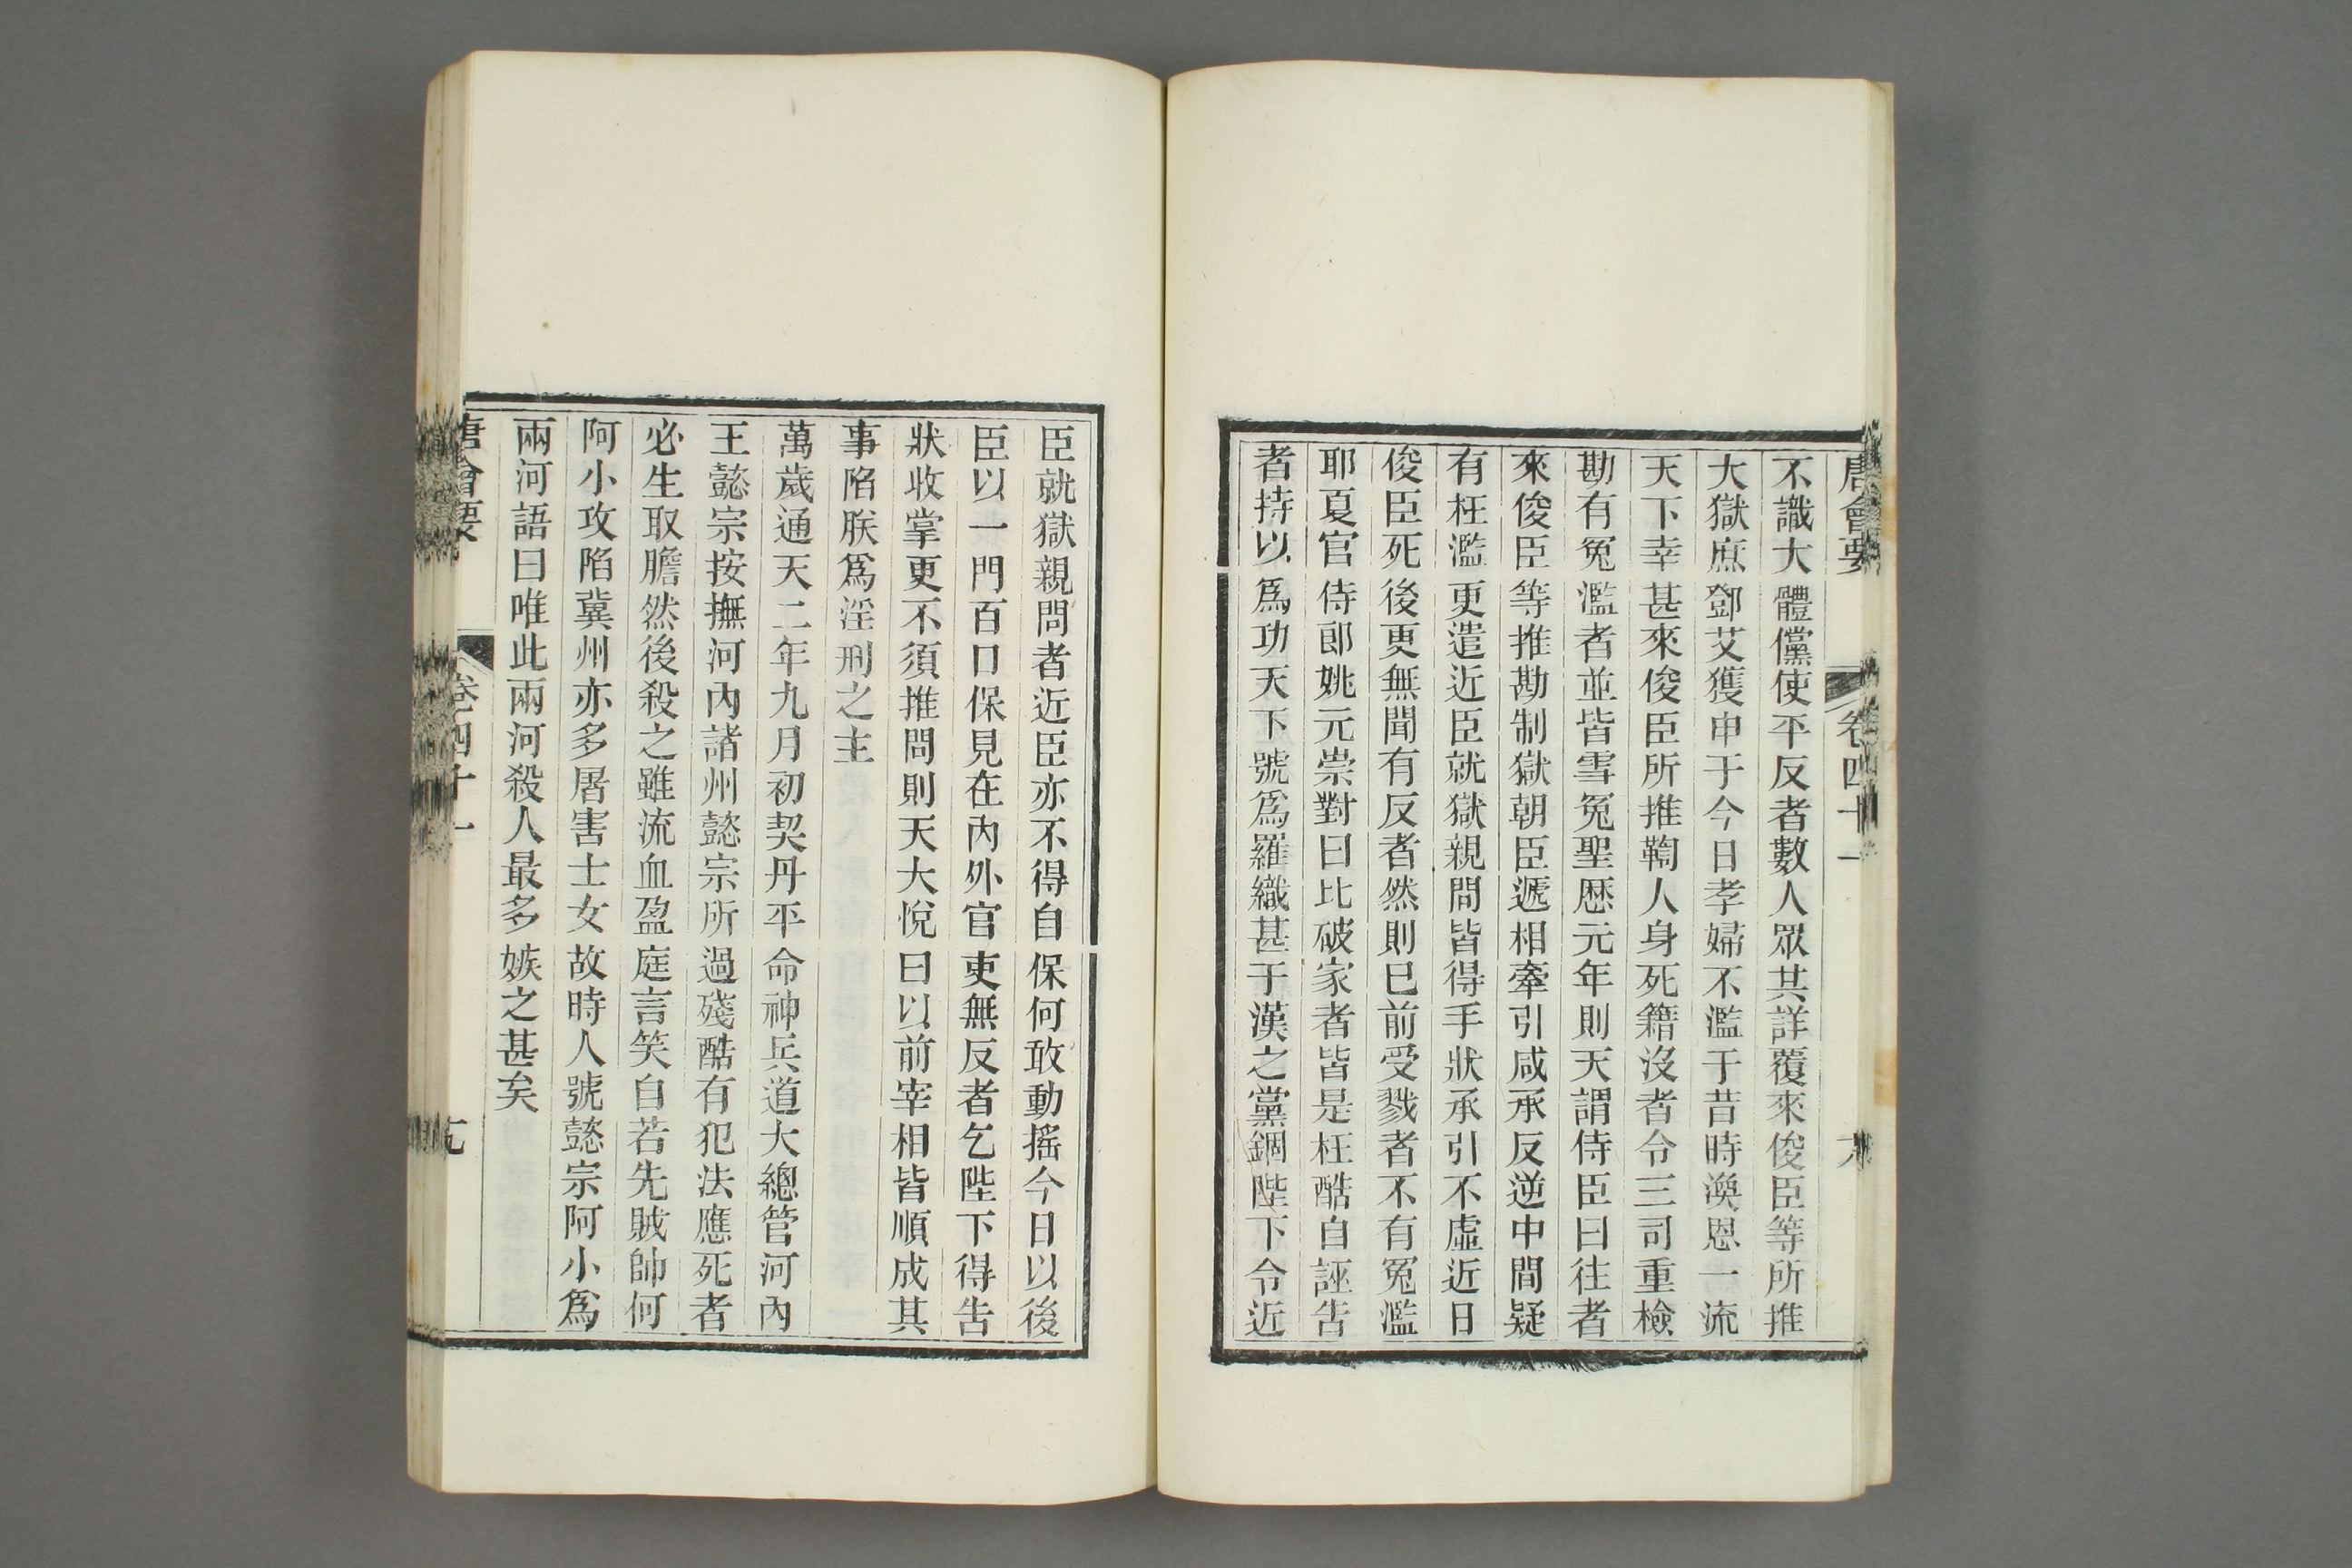 唐會要 卷四十一 大
不識大體儻使平反者數人眾其詳覆來俊臣等所推
大獄庶鄧艾獲申于今日孝婦不濫于昔時渙恩一流
天下幸甚來俊臣所推鞫人身死籍沒者令三司重檢
勘有冤濫者並皆雪冤聖歷元年則天謂侍臣曰往者
來俊臣等推勘制獄朝臣遞相牽引咸承反逆中間疑
有枉濫更遣近臣就獄親問皆得手狀承引不虛近日
俊臣死後更無聞有反者然則已前受戮者不有冤濫
耶夏官侍郎姚元崇對曰比破家者皆是枉酷自誣告
者持以為功天下號為羅織甚于漢之黨錮陛下令近
臣就獄親問者近臣亦不得自保何敢動搖今日以後
臣以一門百口保見在內外官吏無反者乞陛下得告
狀收掌更不須推問則天大悅曰以前宰相皆順成其
事陷朕為淫刑之主
萬歲通天二年九月初契丹平命神兵道大總管河內
王懿宗按撫河內諸州懿宗所過殘酷有犯法應死者
必生取膽然後殺之雖流血盈庭言笑自若先賊帥何
阿小攻陷冀州亦多屠害士女故時人號懿宗阿小為
兩河語曰唯此兩河殺人最多嫉之甚矣
唐會要 卷四十一